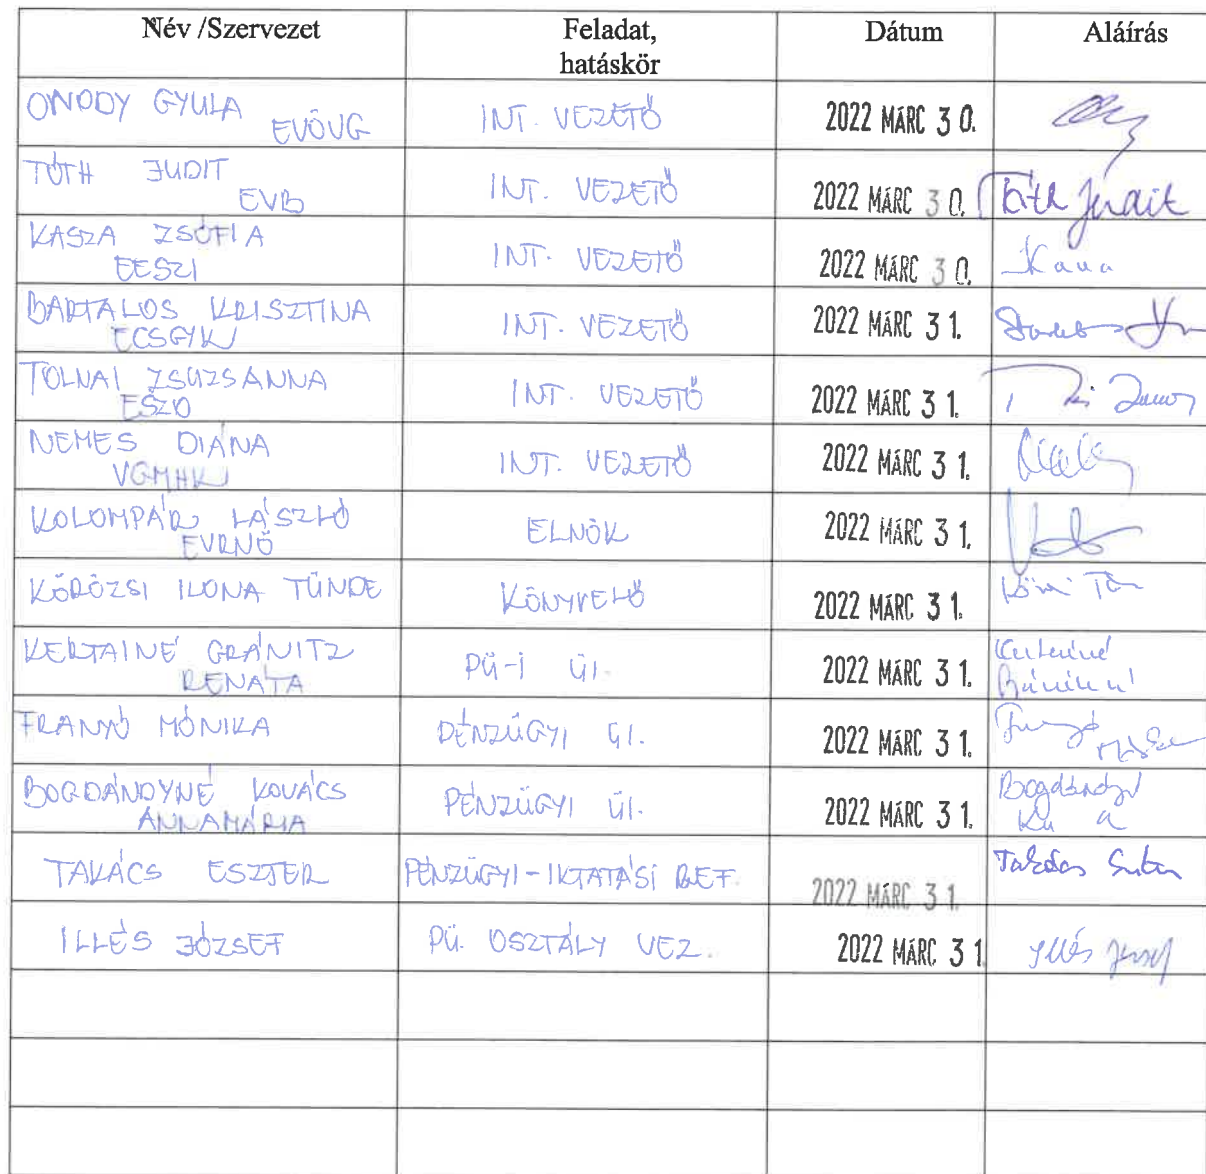 Név /Szervezet Feladat, hatáskör Dátum Aláírás
ONODY GYULA EVÖVG INT. VEZETŐ 2022 MÁRC 3 0.
TÓTH JUDIT EVB INT. VEZETŐ 2022 MÁRC 3 0. Tóth Judit
KASZA ZSÓFIA EESZI INT. VEZETŐ 2022 MÁRC 3 0. Kasza
BARTALOS KRISZTINA ECSGYK INT. VEZETŐ 2022 MÁRC 3 1.
TOLNAI ZSUZSANNA ESZO INT. VEZETŐ 2022 MÁRC 3 1.
NEMES DIÁNA VGMHK INT. VEZETŐ 2022 MÁRC 3 1.
KOLOMPÁR LÁSZLÓ EVRNÖ ELNÖK 2022 MÁRC 3 1.
KŐRÖZSI ILONA TÜNDE KÖNYVELŐ 2022 MÁRC 3 1.
KERTAINÉ GRÁNITZ RENÁTA PÜ-I ÜI. 2022 MÁRC 3 1.
FRANYÓ MÓNIKA PÉNZÜGYI ÜI. 2022 MÁRC 3 1.
BOGDÁNDYNÉ KOVÁCS ANNAMÁRIA PÉNZÜGYI ÜI. 2022 MÁRC 3 1.
TAKÁCS ESZTER PÉNZÜGYI-IKTATÁSI REF. 2022 MÁRC 3 1. Takács Eszter
ILLÉS JÓZSEF PÜ. OSZTÁLY VEZ. 2022 MÁRC 3 1 Illés József